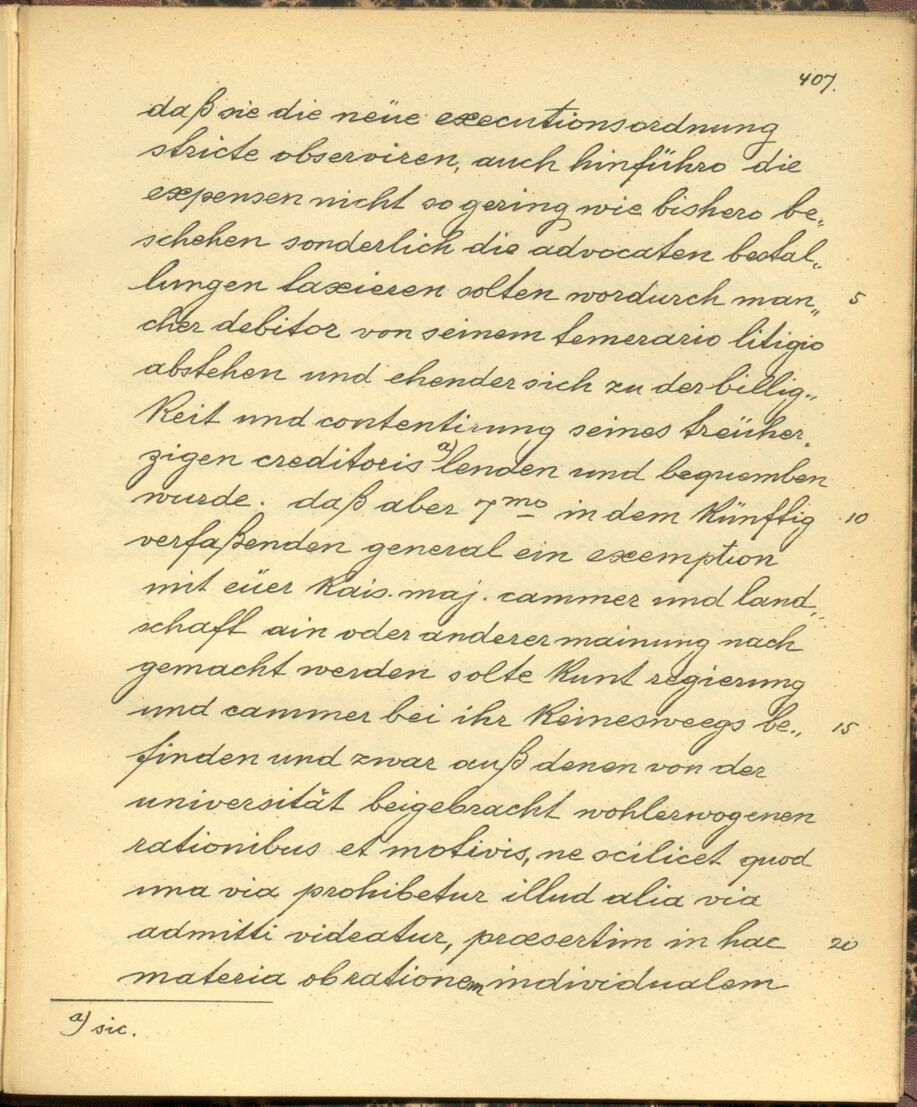 407.
daß sie die neüe executionsordnung
stricte observiren, auch hinführo die
expensen nicht so gering wie bishero be„
schehen sonderlich die advocaten bestal„
lungen taxieren solten wordurch man„ 5
cher debitor von seinem temerario litigio
abstehen und ehender sich zu der billig„
keit und contentirung seines treüher„
zigen creditoris a) lenden und bequemben
wurde. daß aber 7mo in dem künfftig 10
verfaßenden general ein exemption
mit eüer kais. maj. cammer und land„
schafft ain oder anderer mainung nach
gemacht werden solte kunt regierung
und cammer bei ihr keinesweegs be„ 15
finden und zwar auß denen von der
universität beigebracht wohlerwogenen
rationibus et motivis, ne scilicet quod
una via prohibetur illud alia via
admitti videatur, præsertim in hac 20
materia ob rationem individualem
a) sic.